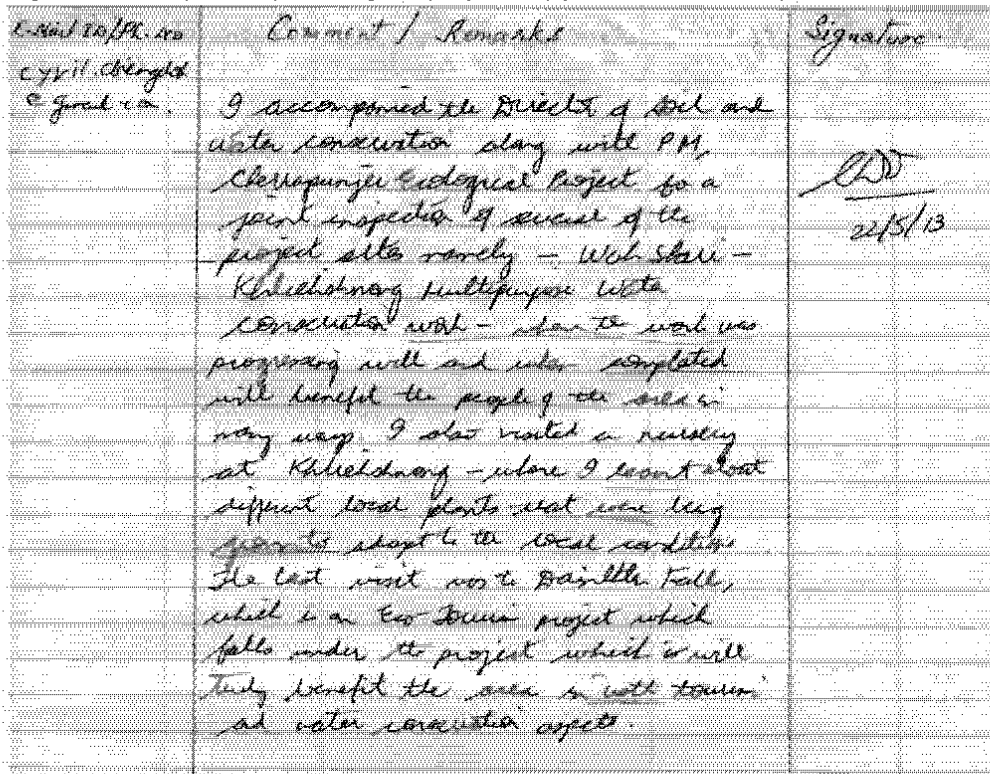 E-Mail ID/Ph. No
Comment / Remarks
Signature
cyril.diengdoh
@gmail.com.
I accompanied the Director of Soil and
water conservation along with PM,
Cherrapunjee Ecological Project for a
joint inspection of several of the
project sites namely – Wah Shari –
Khliehshnong Multipurpose Water
conservation work – where the work was
progressing well and when completed
will benefit the people of the area in
many ways. I also visited a nursery
at Khliehshnong – where I learnt about
different local plants that were being
grown to adapt to the local conditions
The last visit was to Dainthlen Fall,
which is an Eco-Tourism project which
falls under the project which is will
truly benefit the area in both tourism
and water conservation aspects.
22/5/13